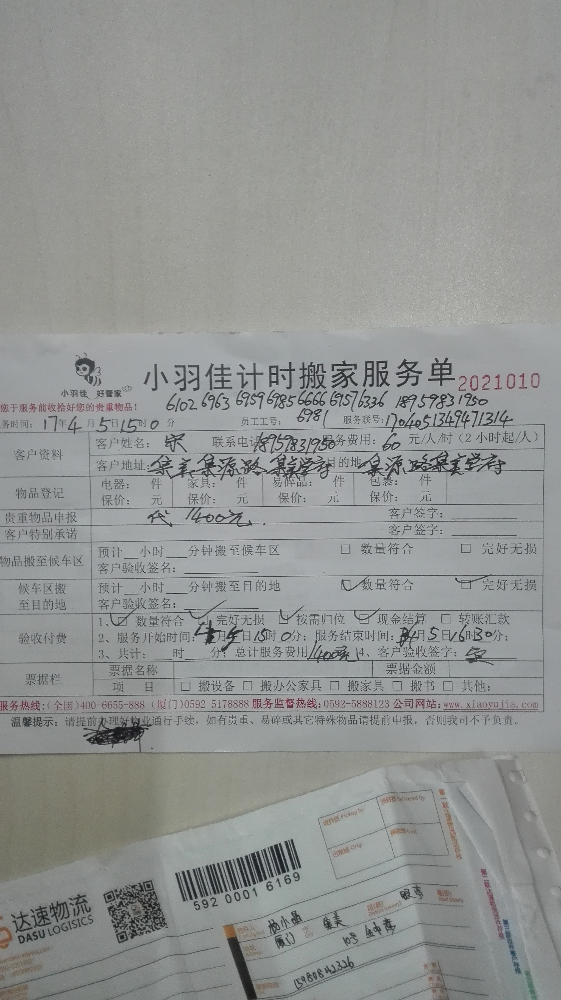 小羽佳 好管家
小羽佳计时搬家服务单 2021010
您于服务前收拾好您的贵重物品！
6102 6963 6959 6985 6666 6957 6336 18959831950
务时间：17年4月5日15时0分 员工工号： 6981 服务联号：1704051349471314
客户资料
客户姓名：宋 联系电话：18959831950 服务费用：60元/人/时（2小时起/人）
客户地址：集美集源路集美学府 目的地：集源路集美学府
物品登记
电器： 件 家具： 件 易碎品： 件 包裹： 件
保价： 元 保价： 元 保价： 元 保价： 元
贵重物品申报 代 1400元. 客户签字：
客户特别承诺 客户签字：
物品搬至候车区
预计__小时__分钟搬至候车区 □ 数量符合 □ 完好无损
客户验收签名：
候车区搬至目的地
预计__小时__分钟搬至目的地 ☑ 数量符合 ☑ 完好无损
客户验收签名：
验收付费
1、☑ 数量符合 ☑ 完好无损 ☑ 按需归位 ☑ 现金结算 □ 转账汇款
2、服务开始时间：4月5日15时0分；服务结束时间：月5日16时30分；
3、共计：__时__分；总计服务费用1400元 4、客户验收签字：宋
票据栏
票据名称 票据金额
项 目 □ 搬设备 □ 搬办公家具 □ 搬家具 □ 搬书 □ 其他：
服务热线：(全国)400-6655-888 (厦门)0592 5178888 服务监督热线：0592-5888123 公司网站：www.xiaoyujia.com
温馨提示：请提前办理好物业通行手续，如有贵重、易碎或其它特殊物品请提前申报，否则我司不予负责。
达速物流
DASU LOGISTICS
592 0001 6169
杨小晶
厦门 集美
15980842326